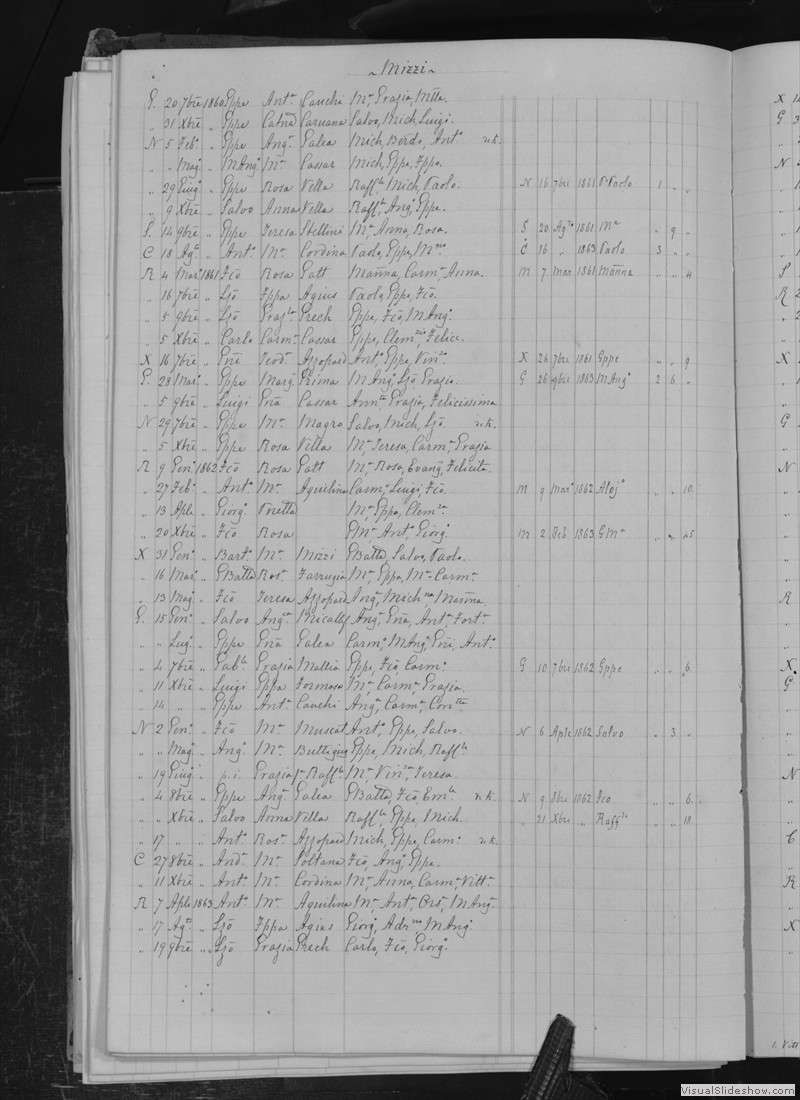 ~ Mizzi ~
G. 20 7bre 1860 Gppe Ant.a Cauchi M.a, Grazia, Vitta.
„ 31 Xbre „ Gppe Catna Caruana Salvo, Mich, Luigi.
N 5 Feb.o „ Gppe Ang.a Galea Mich, Berdo, Ant.o n.k.
„ „ Mag.o „ MAng.o M.a Cassar Mich, Gppe, Gppa.
„ 29 Giug.o „ Gppe Rosa Vella Raff.la, Mich, Paolo. N 16 7bre 1861 P. Paolo 1 „ „
„ 9 Xbre „ Salvo Anna Vella Raff.la, Ang.o, Gppe.
S. 14 9bre „ Gppe Teresa Stellini M.a, Anna, Rosa. S 20 Ag.to 1861 M.a „ 9 „
C 18 Ag.to „ Ant.o M.a Cordina Paolo, Gppe, M.no C 16 „ 1863 Paolo 3 „ „
R 4 Mar.o 1861 Fco Rosa Gatt Manna, Carm.a, Anna. M 7 Mar 1861 Manna „ „ 4
„ 16 7bre „ Lzo Gppa Agius Paolo, Gppe, Fco.
„ 5 9bre „ Lzo Graz.la Grech Gppe, Fco, MAng.o
„ 5 Xbre „ Carlo Carm.a Cassar Gppe, Clem.za, Felice.
X 16 7bre „ Eni Teod.a Azzopard Ant.o, Gppe, Vin.zo X 26 7bre 1861 Gppe „ „ 9
G. 28 Mar.o „ Gppe Marg.a Prima MAng.o, Lzo, Grazia. G 26 9bre 1863 MAng.o 2 6 „
„ 5 9bre „ Luigi Gna Cassar Ann.ta, Grazia, Felicissima
N 29 7bre „ Gppe M.a Magro Salvo, Mich, Lzo. n.k.
„ 5 Xbre „ Gppe Rosa Vella M.a, Teresa, Carm.a, Grazia
R 9 Gen.o 1862 Fco Rosa Gatt M.a, Rosa, Evang.a, Felicita.
„ 27 Feb.o „ Ant.o M.a Aquilina Carm.o, Luigi, Fco. M 9 Mar.o 1862 Aloj.o „ „ 10.
„ 13 Aple „ Giorg.o Vnetta M.a, Gppe, Clem.za
„ 20 Xbre „ Fco Rosa GM.a, Ant.o, Giorg.o M 2 Feb 1863 GM.a „ „ 45
X 31 Gen.o „ Bart.o M.a Mizzi GBatta, Salvo, Paolo.
„ 16 Mar.o „ GBatta Ros.a Farrugia M.a, Gppa, M.a Carm.a
„ 13 Mag.o „ Fco Teresa Azzopard Ang.a, Mich.na Manna.
G. 15 Gen.o „ Salvo Ang.ca Micallef Ang.o, Gna, Ant.a, Fort.a
„ „ Lug.o „ Gppe Gna Galea Carm.o, MAng.o, Eni, Ant.o
„ 4 7bre „ Gab.le Grazia Mallia Gppe, Fco, Carm.o G 10 7bre 1862 Gppe „ „ 6.
„ 11 Xbre „ Luigi Gppa Formosa M.a, Carm.a, Grazia.
„ 14 „ „ Gppe Ant.a Cauchi Ang.a, Carm.a, Con.tta
N 2 Gen.o „ Fco M.a Muscat Ant.o, Gppe, Salvo. N 6 Aple 1862 Salvo „ 3 „
„ „ Mag.o „ Ang.o M.a Buttigieg Gppe, Mich, Raff.le
„ 19 Giug.o „ p.i. Grazia f.a Raff.le M.a, Vin.za, Teresa.
„ 4 8bre „ Gppe Ang.a Galea GBatta, Fco, Em.le n.k. N 9 8bre 1862 Fco „ „ 6.
„ „ Xbre „ Salvo Anna Vella Raff.le, Gppe, Mich. „ 21 Xbre „ Raff.le „ „ 18.
„ 17 „ „ Ant.o Ros.a Azzopard Mich, Gppe, Carm.o n.k.
C 27 8bre „ And.a M.a Soltana Fco, Ang.o, Gppe.
„ 11 Xbre „ Ant.o M.a Cordina M.a, Anna, Carm.a, Vitt.a
R 7 Aple 1863 Ant.o M.a Aquilina M.a, Ant.a, Ors.a, MAng.a
„ 17 Ag.to „ Lzo Gppa Agius Giorg.o, Adr.no, MAng.o
„ 19 9bre „ Lzo Grazia Grech Carlo, Fco, Giorg.o
VisualSlideshow.com